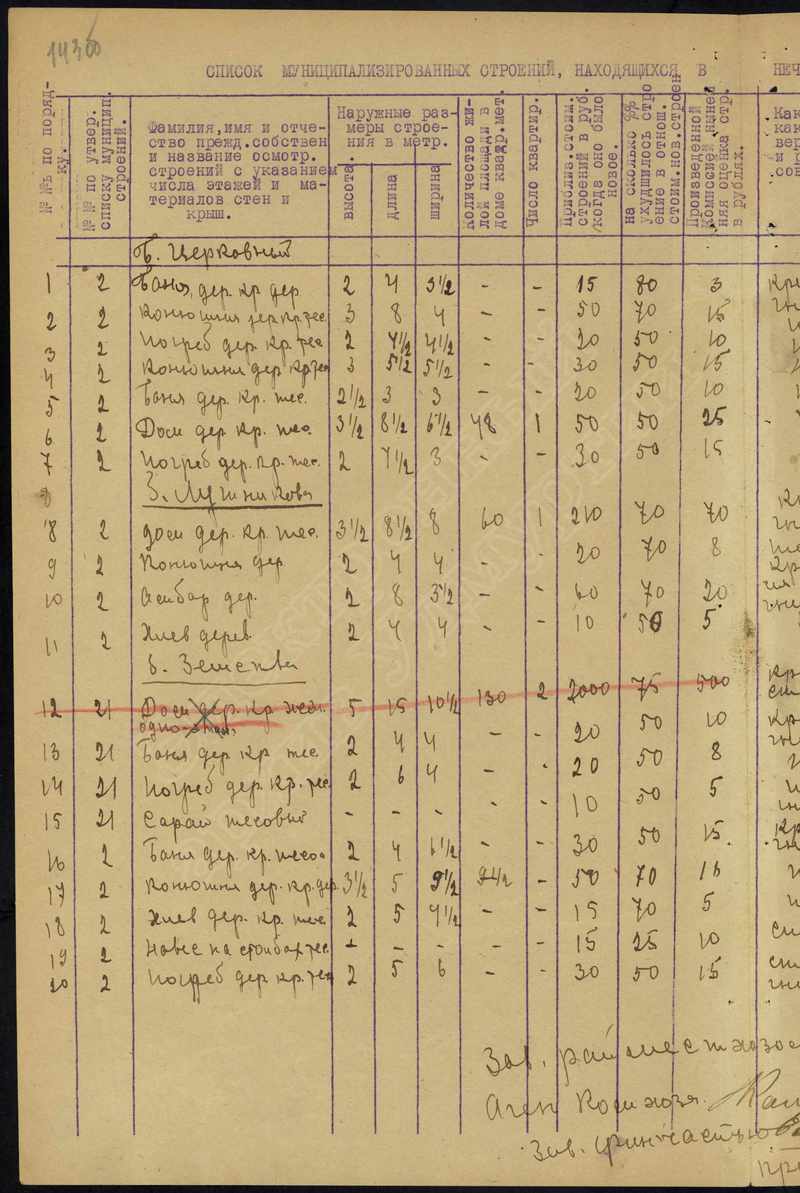 14300
СПИСОК МУНИЦИПАЛИЗИРОВАННЫХ СТРОЕНИЙ, НАХОДЯЩИХСЯ В НЕЧ
№ №ъ по поряд-
ку.
№ № по утвер.
списку муницип.
строений.
Фамилия, имя и отче-
ство прежд.собствен
и название осмотр.
строений с указанием
числа этажей и ма-
териалов стен и
крыш.
Наружные раз-
меры строе-
ния в метр.
высота
длина
ширина
Количество жи-
лой площади в
доме квадр.мет.
Число квартир.
Приблиз.стоим.
строений в руб.
когда оно было
новое.
на сколько %%
ухудшилось сто
ение в отнош.
стоим.нов.строен
Произведенной
комиссией нынеш
няя оценка стр.
в рублях.
Как
как
вер
и
сос
Б. Церковный
1 2 Баня, дер. кр дер 2 4 3½ - - 15 80 3 кре
2 2 Конюшня дер кр тес 3 8 4 - - 50 70 15
3 2 Погреб дер. кр. тес 2 4½ 4½ - - 20 50 10
4 2 Конюшня дер кр тес 3 5½ 5½ - - 30 50 15
5 2 Баня дер. кр. тес. 2½ 3 3 - - 20 50 10
6 2 Дом дер. кр. тес. 3½ 8½ 6½ 48 1 50 50 25
7 2 Погреб дер. кр. тес. 2 4½ 3 - - 30 50 15
З. Лушникова
8 2 дом дер. кр. тес. 3½ 8½ 8 60 1 210 70 70
9 2 Конюшня дер 2 4 4 - - 20 70 8
10 2 Амбар дер. 2 8 3½ - - 60 70 20
11 2 Хлев дерев 2 4 4 - - 10 50 5
б. Земства
12 21 Дом дер. кр. жел. 5 15 10½ 130 2 2000 75 500
одно-этаж,
13 21 Баня дер кр тес. 2 4 4 - - 20 50 10
14 21 Погреб дер. кр. тес 2 6 4 - - 20 50 8
15 21 Сарай тесовый - - - - - 10 50 5
16 2 Баня дер. кр. тесов 2 4 6½ - - 30 50 15
17 2 Конюшня дер. кр. дер 3½ 5 9½ - 50 70 16
18 2 Хлев дер. кр. тес 2 5 4½ - - 15 70 5
19 2 Навес на столбах тес. - - - - - 15 25 10
20 2 Погреб дер кр. тес 2 5 6 - - 30 50 15
Зав. райместхозом
Аген Комхоза.
Зав. финчастью